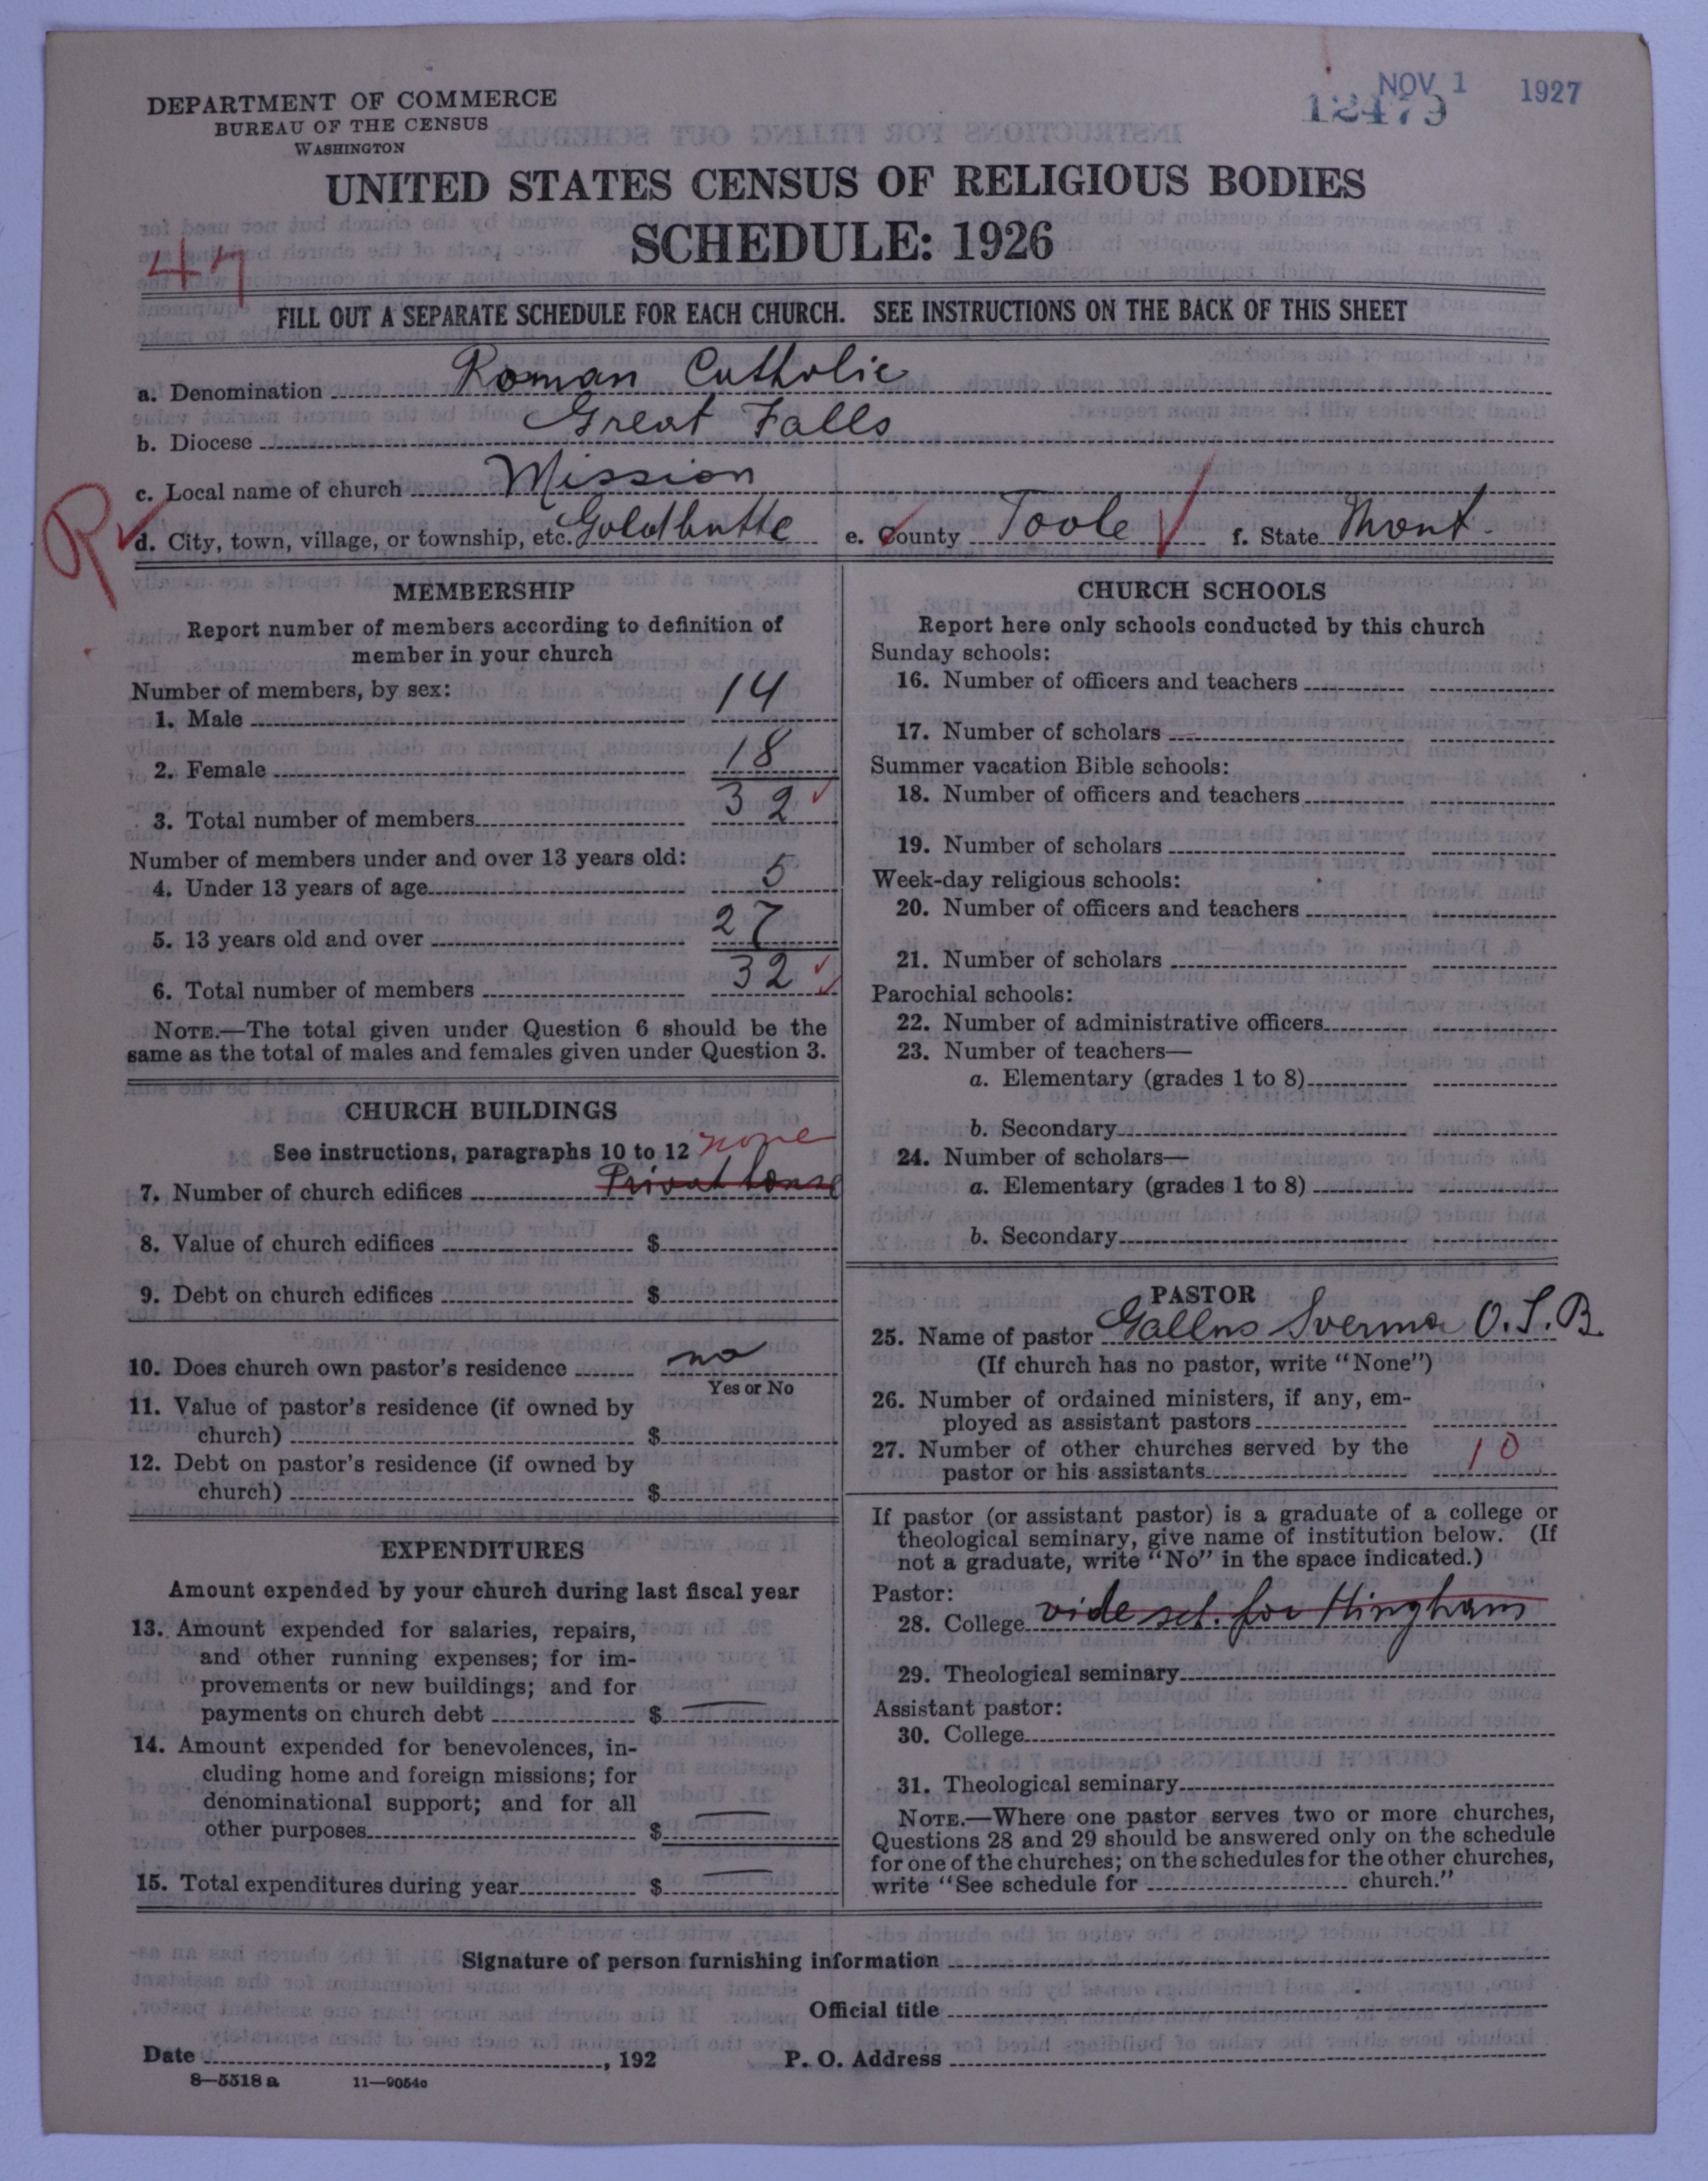 NOV 1 1927
12479
DEPARTMENT OF COMMERCE
BUREAU OF THE CENSUS
WASHINGTON
UNITED STATES CENSUS OF RELIGIOUS BODIES
SCHEDULE: 1926
47
FILL OUT A SEPARATE SCHEDULE FOR EACH CHURCH. SEE INSTRUCTIONS ON THE BACK OF THIS SHEET
a. Denomination Roman Catholic
b. Diocese Great Falls
c. Local name of church Mission
R
d. City, town, village, or township, etc. Goldbutte e. County Toole f. State Mont.
MEMBERSHIP
Report number of members according to definition of
member in your church
Number of members, by sex:
1. Male 14
2. Female 18
3. Total number of members 32
Number of members under and over 13 years old:
4. Under 13 years of age 5
5. 13 years old and over 27
6. Total number of members 32
NOTE.—The total given under Question 6 should be the
same as the total of males and females given under Question 3.
CHURCH BUILDINGS
See instructions, paragraphs 10 to 12 none
7. Number of church edifices Privat house
8. Value of church edifices $
9. Debt on church edifices $
10. Does church own pastor's residence no
Yes or No
11. Value of pastor's residence (if owned by
church) $
12. Debt on pastor's residence (if owned by
church) $
EXPENDITURES
Amount expended by your church during last fiscal year
13. Amount expended for salaries, repairs,
and other running expenses; for im-
provements or new buildings; and for
payments on church debt $ —
14. Amount expended for benevolences, in-
cluding home and foreign missions; for
denominational support; and for all
other purposes $ —
15. Total expenditures during year $ —
CHURCH SCHOOLS
Report here only schools conducted by this church
Sunday schools:
16. Number of officers and teachers
17. Number of scholars
Summer vacation Bible schools:
18. Number of officers and teachers
19. Number of scholars
Week-day religious schools:
20. Number of officers and teachers
21. Number of scholars
Parochial schools:
22. Number of administrative officers
23. Number of teachers—
a. Elementary (grades 1 to 8)
b. Secondary
24. Number of scholars—
a. Elementary (grades 1 to 8)
b. Secondary
PASTOR
25. Name of pastor Gallus Sverma O.S.B.
(If church has no pastor, write "None")
26. Number of ordained ministers, if any, em-
ployed as assistant pastors
27. Number of other churches served by the
pastor or his assistants 10
If pastor (or assistant pastor) is a graduate of a college or
theological seminary, give name of institution below. (If
not a graduate, write "No" in the space indicated.)
Pastor:
28. College vide sch. for Hingham
29. Theological seminary
Assistant pastor:
30. College
31. Theological seminary
NOTE.—Where one pastor serves two or more churches,
Questions 28 and 29 should be answered only on the schedule
for one of the churches; on the schedules for the other churches,
write "See schedule for church."
Signature of person furnishing information
Official title
Date , 192 P. O. Address
8—5518 a 11—9054c